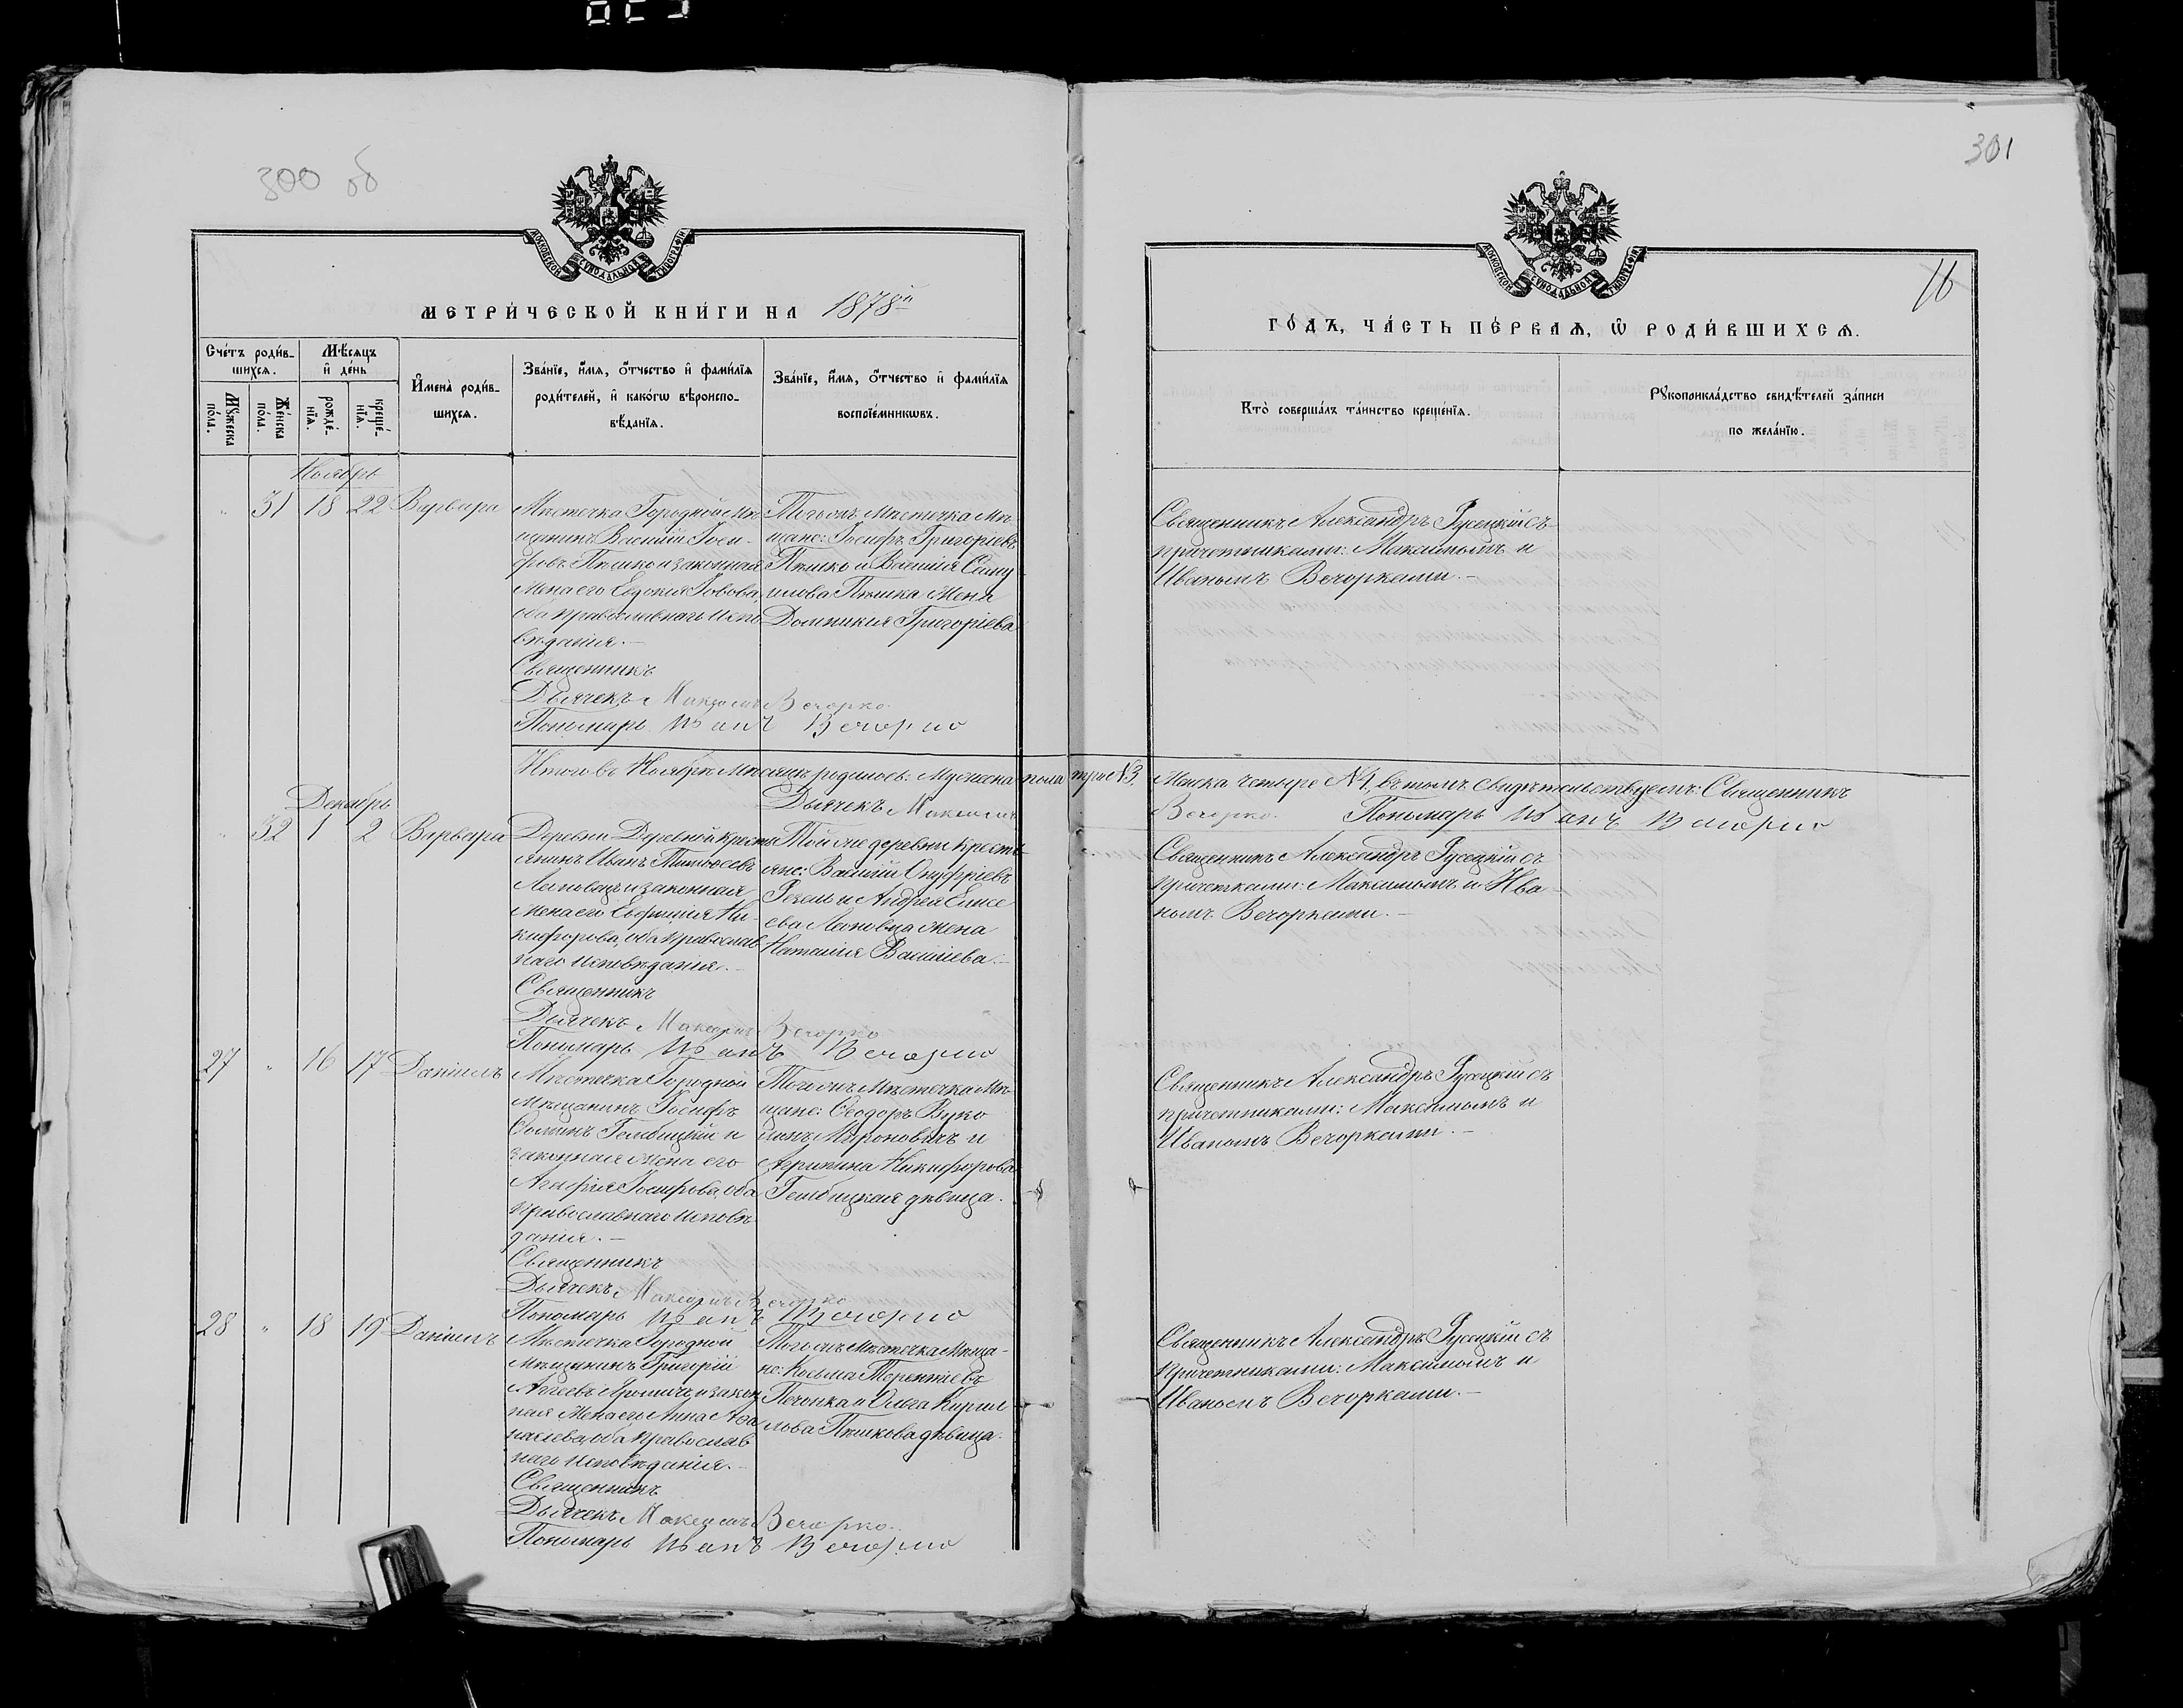 300 об
МОСКОВСКОЙ СѴНОДАЛЬНОЙ ТИПОГРАФІИ
МЕТРИ́ЧЕСКОЙ КНИ́ГИ НА 1878й
Сче́тъ роди́в-
шихся.
Мѣ́сяцъ
и҆ де́нь
Мꙋ́жеска
по́ла.
Же́нска
по́ла.
рожде́-
нїѧ.
креще́-
нїѧ.
И҆мена̀ роди́в-
шихсѧ.
Зва́нїе, и҆́мѧ, ѻ҆́тчество и҆ фами́лїѧ
роди́телей, и҆ како́гѡ вѣроиспо-
вѣ́данїѧ.
Зва́нїе, и҆́мѧ, ѻ҆́тчество и҆ фами́лїѧ
воспрїе́мникѡвъ.
Ноябрь
" 31 18 22 Варвара
Мѣстечка Городной Мѣ
щанинъ Василій Іоси-
фовъ Пѣшко и законная
жена его Евдокія Іовова,
оба православнаго испо
вѣданія.-
Священникъ
Дьячекъ Максимъ Вечорко.
Пономарь Иванъ Вечорко
Того жъ мѣстечка мѣ-
щане: Іосифъ Григоріевъ
Пѣшко и Василія
Пѣшка жена
Домникія Григоріева
Итого въ Ноябрѣ мѣсяцѣ родилось: Мужеска пола три №3,
Дьячекъ Максимъ
Декабрь
" 32 1 2 Варвара
Деревни Деревной крестъ
янинъ Иванъ
и законная
жена его Евфимія Ни-
кифорова, оба православ
наго исповѣданія.-
Священникъ
Дьячекъ Максимъ Вечорко
Пономарь Иванъ Вечорко
Той же деревни кресть-
яне: Василій Онуфріевъ
и Андрея Елисе
ева жена
Наталія Василіева.-
27 " 16 17 Даніилъ
Мѣстечка Городной
Мѣщанинъ Іосифъ
и
законная жена его
Агафія Іосифова, оба
православнаго исповѣ-
данія.-
Священникъ
Дьячекъ Максимъ Вечорко
Пономарь Иванъ Вечорко
Того жъ мѣстечка мѣ-
щане: Ѳеодоръ Вуко
ловъ Мироновичъ и
Агрипина Никифорова
дѣвица.
28 " 18 19 Даніилъ
Мѣстечка Городной
мѣщанинъ Григорій
и закон
ная жена его Анна Аѳа
насіева, оба православ
наго исповѣданія.-
Священникъ
Дьячекъ Максимъ Вечорко.
Пономарь Иванъ Вечорко
Того жъ мѣстечка мѣща-
не: Косьма Терентіевъ
Печонка и Ольга Кирил
лова Пѣшкова дѣвица.
301
16
МОСКОВСКОЙ СѴНОДАЛЬНОЙ ТИПОГРАФІИ
ГО́ДЪ, ЧА́СТЬ ПЕ́РВАѦ, Ѡ҆ РОДИ́ВШИХСѦ.
Кто̀ соверша́лъ та́инство креще́нїѧ.
Рꙋкоприкла́дство свидѣ́телей за́писи
по жела́нїю.
Священникъ Александръ Русецкій съ
причетниками: Максимомъ и
Иваномъ Вечорками.-
Женска четыре №4, въ томъ свидѣтельствуемъ: Священникъ
Вечорко. Пономарь Иванъ Вечорко
Священникъ Александръ Русецкій съ
причетками: Максимомъ и Ива-
номъ Вечорками.-
Священникъ Александръ Русецкій съ
причетниками: Максимомъ и
Иваномъ Вечорками.-
Священникъ Александръ Русецкій съ
причетниками: Максимомъ и
Иваномъ Вечорками.-